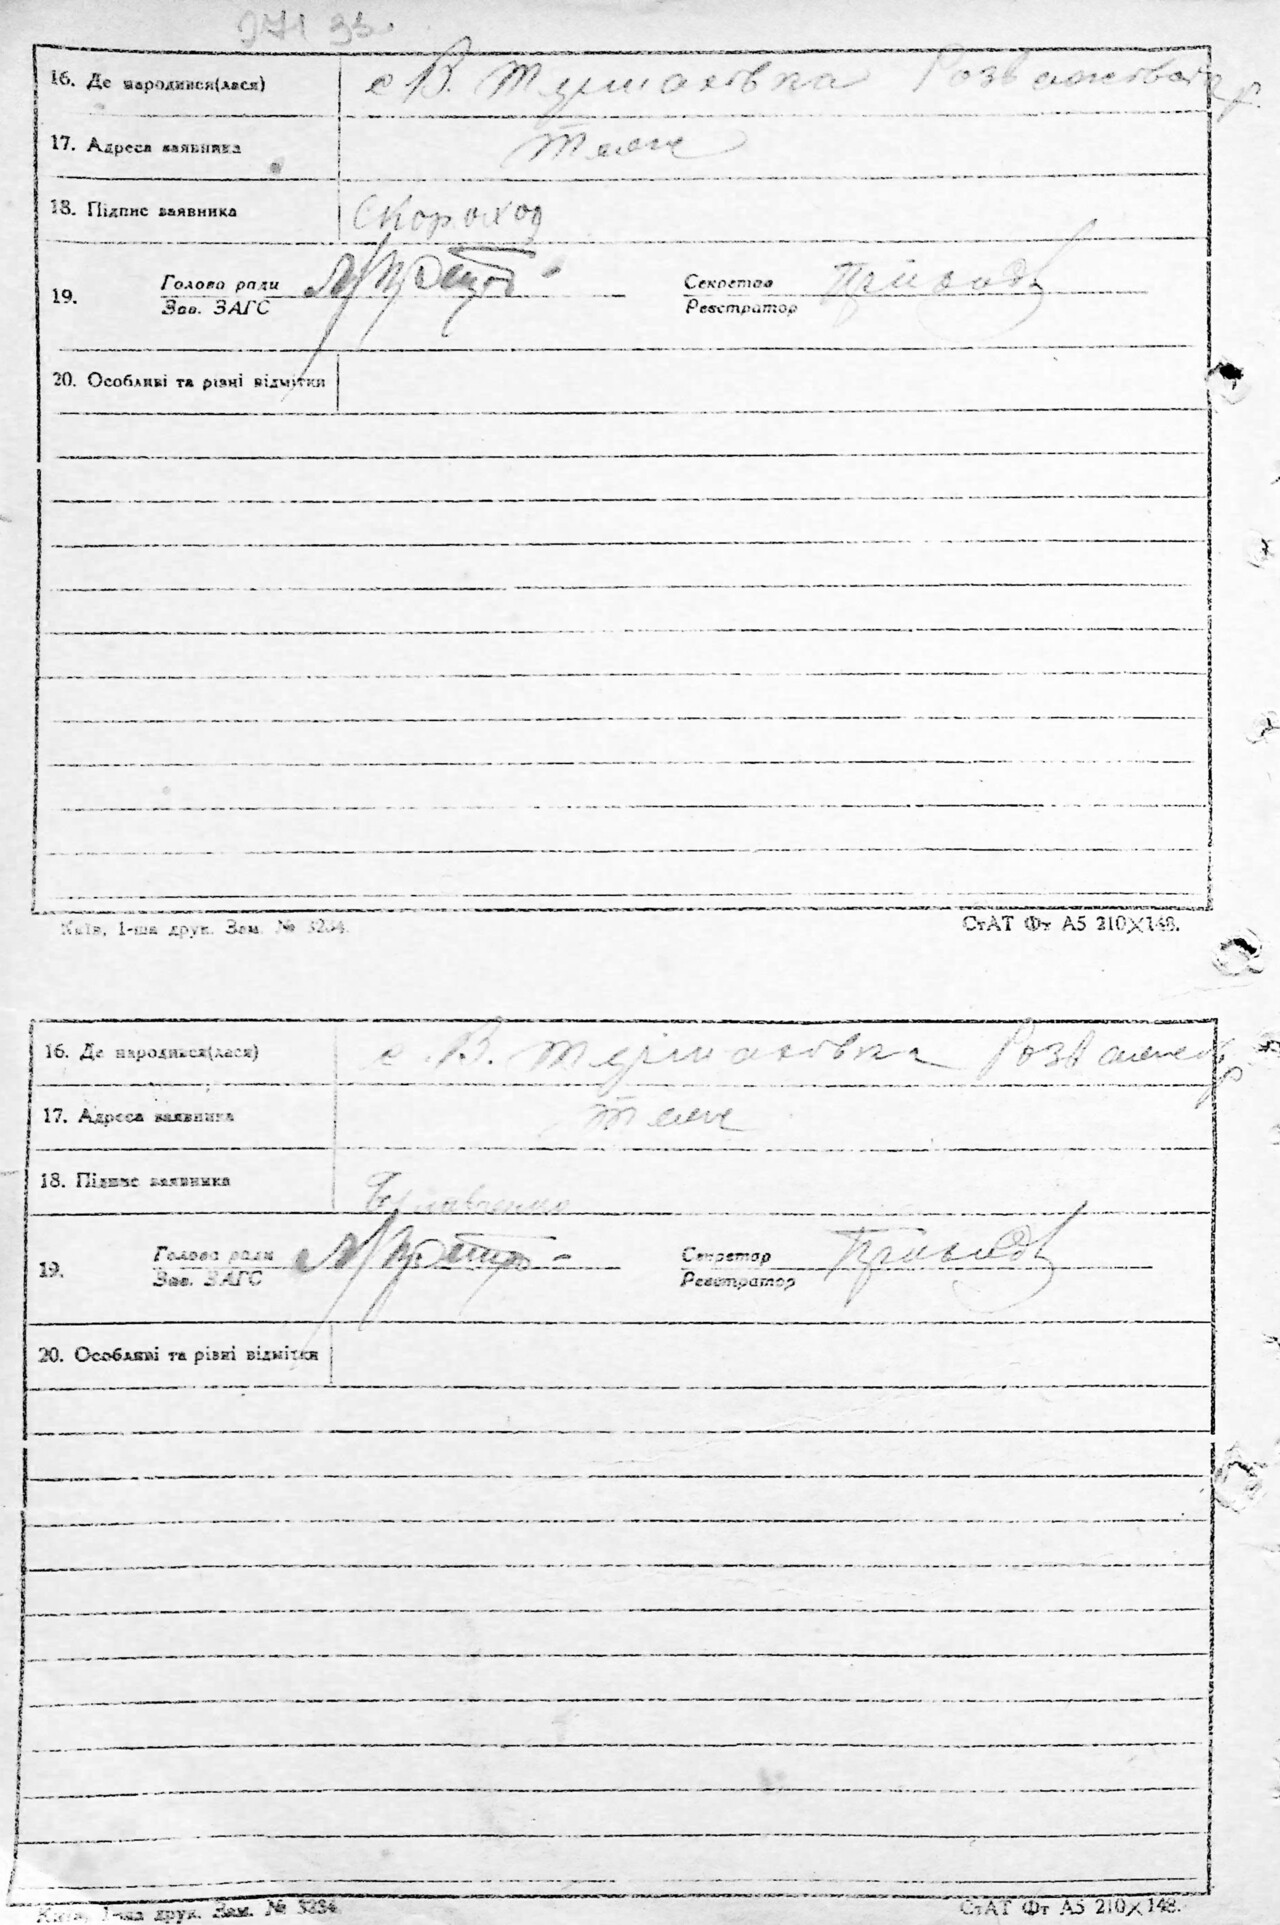 16. Де народився(лася) с В. Термаховка Розважівськ р.
17. Адреса заявника теж
18. Підпис заявника Скороход
Голова ради Секретар
19.
Зав. ЗАГС Реєстратор
20. Особливі та різні відмітки
Київ, 1-ша друк. Зам. № 3234. СтАТ Фт А5 210×148.
16. Де народився(лася) с. В. Термаховка
17. Адреса заявника теж
18. Підпис заявника
Голова ради Секретар
19.
Зав. ЗАГС Реєстратор
20. Особливі та різні відмітки
Київ, 1-ша друк. Зам. № 3234. СтАТ Фт А5 210×148.